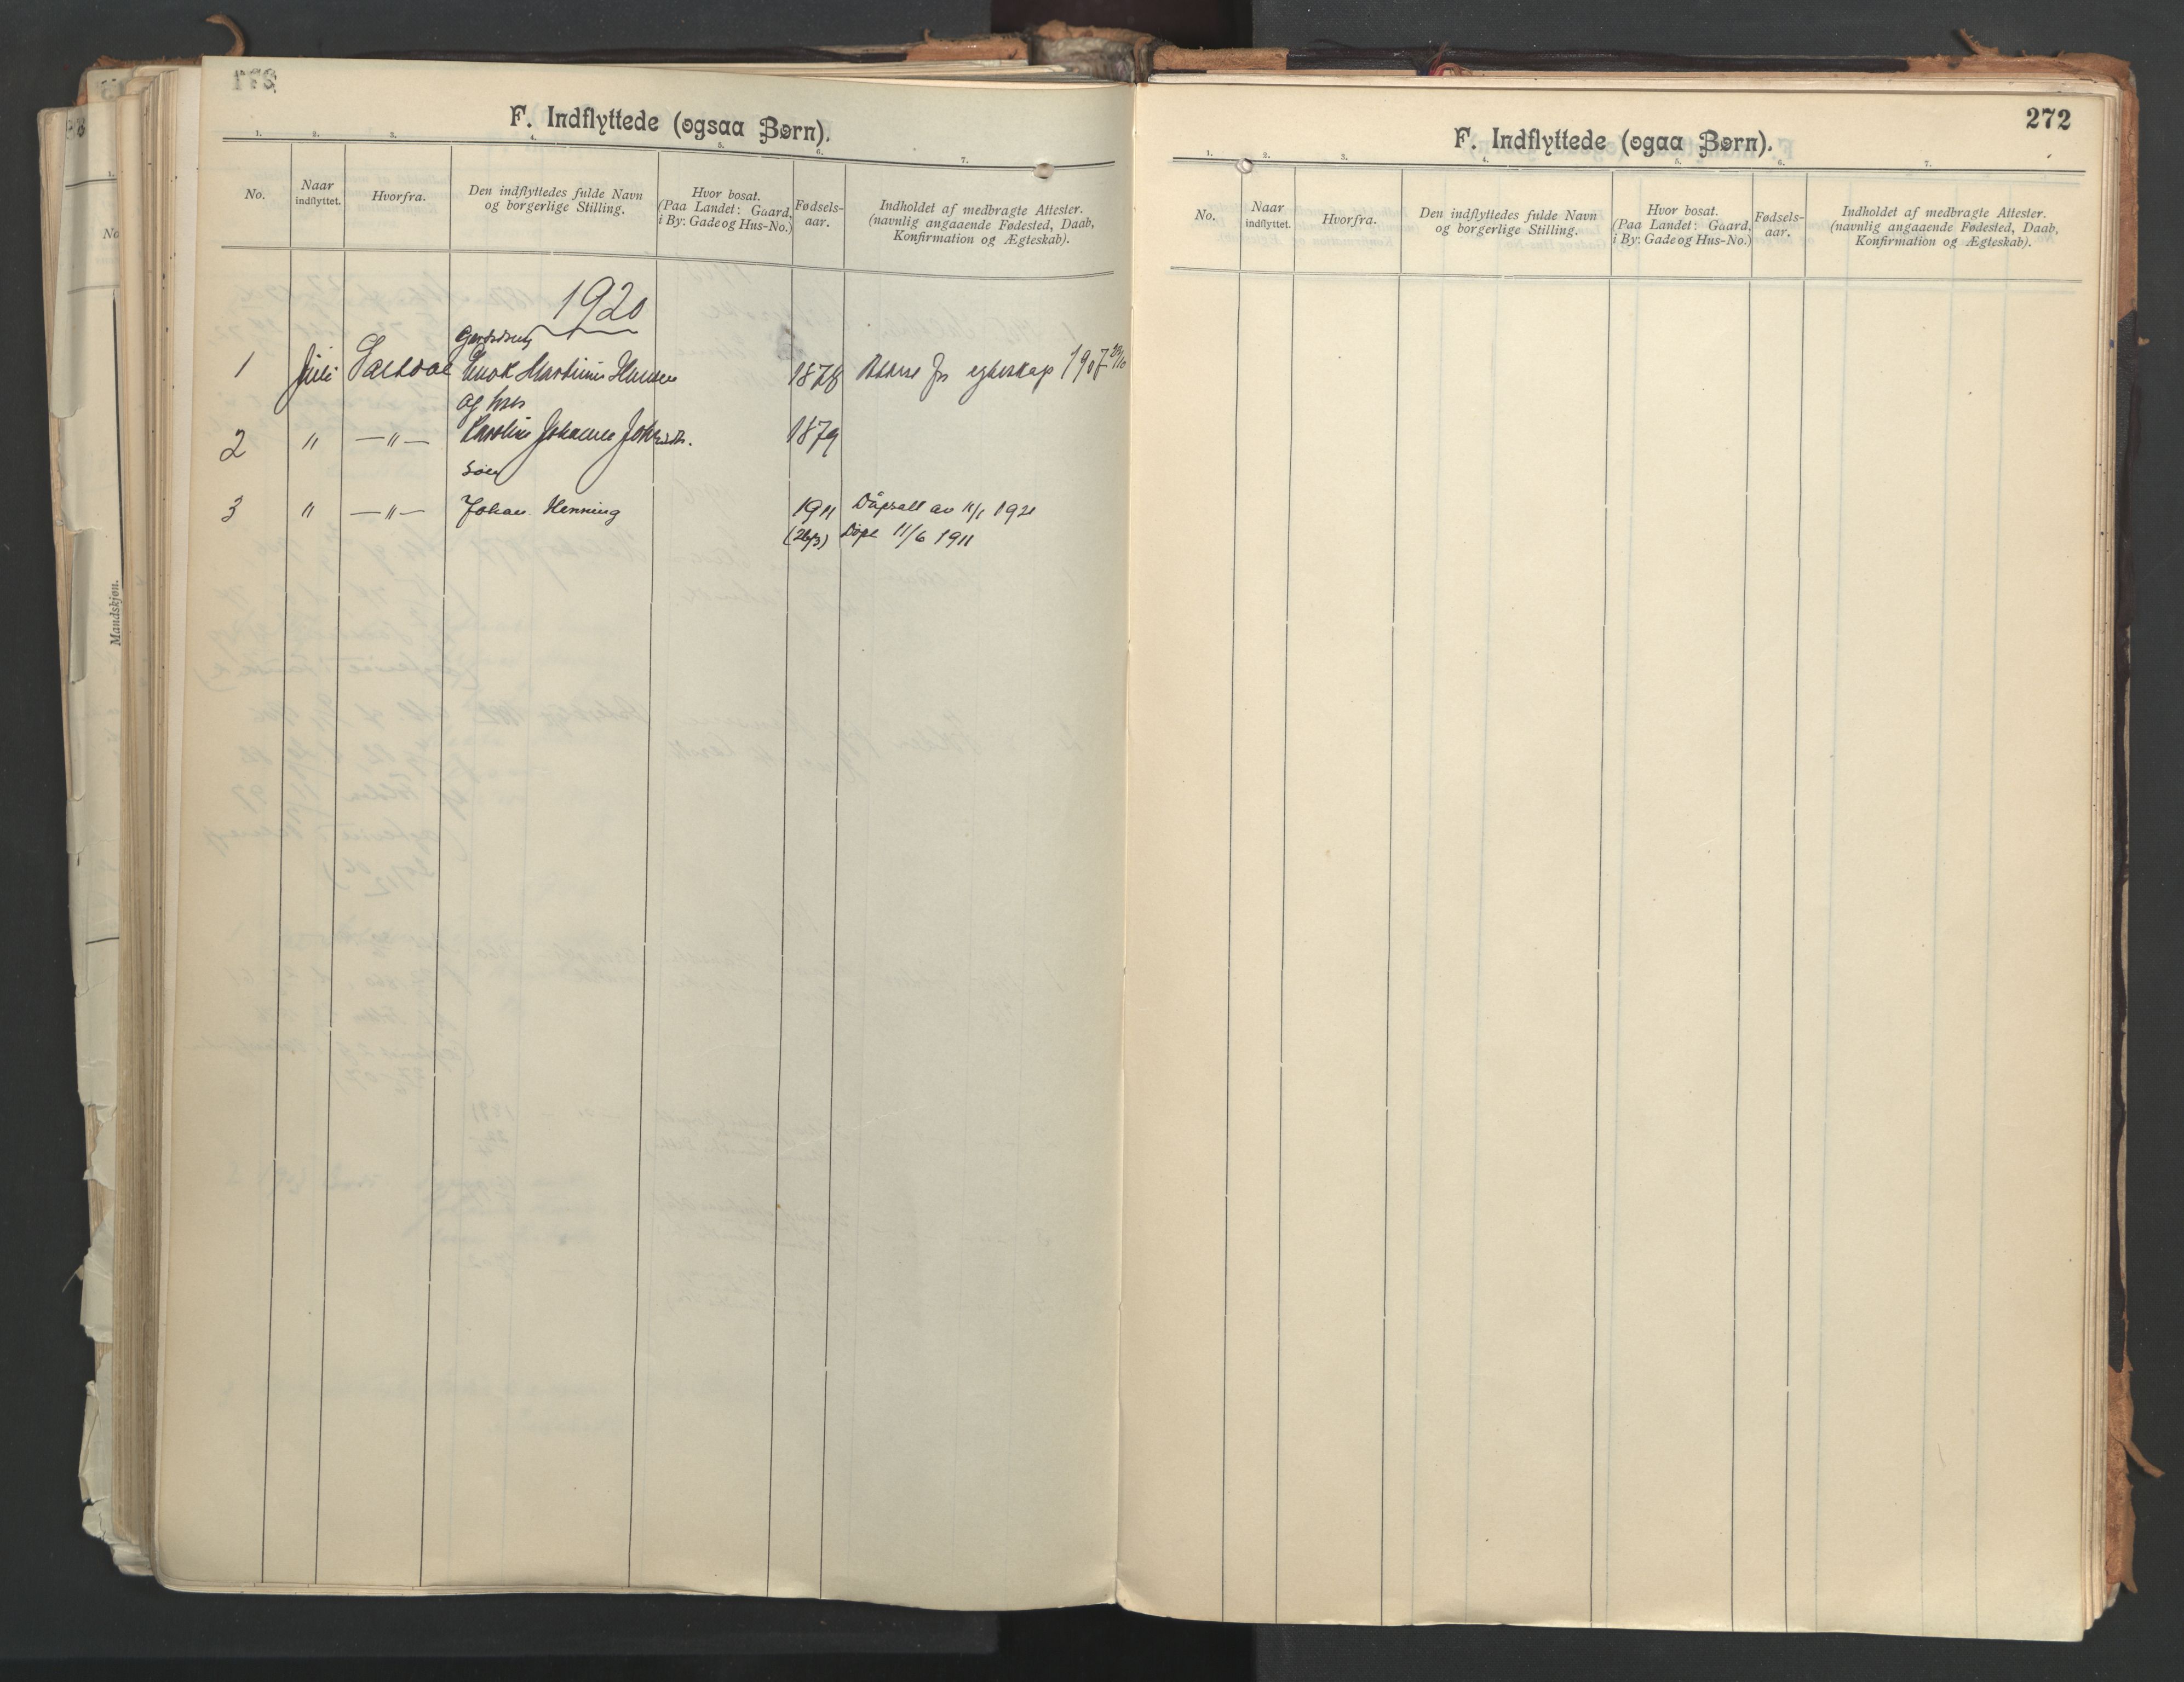 F. Indflyttede (ogsaa Børn).
1. 2. 3. 4. 5. 6. 7.
No.
Naar
indflyttet.
Hvorfra.
Den indflyttedes fulde Navn
og borgerlige Stilling.
Hvor bosat.
(Paa Landet: Gaard,
i By: Gade og Hus-No.)
Fødsels-
aar.
Indholdet af medbragte Attester.
(navnlig angaaende Fødested, Daab,
Konfirmation og Ægteskab).
1920
1 Juli Saltdal Enok Martinus Hansen 1878 egteskap 1907
og
2 " —"— Karoline Johanne 1879
Søn
3 " —"— Johan Henning 1911 Dåpsatt av 11/1 1921
(26/3) Døpt 11/6 1911
No
Mandskjøn.
272
F. Indflyttede (ogaa Børn).
1. 2. 3. 4. 5. 6. 7.
No.
Naar
indflyttet.
Hvorfra.
Den indflyttedes fulde Navn
og borgerlige Stilling.
Hvor bosat.
(Paa Landet: Gaard,
i By: Gade og Hus-No.)
Fødsels-
aar.
Indholdet af medbragte Attester.
(navnlig angaaende Fødested, Daab,
Konfirmation og Ægteskab).